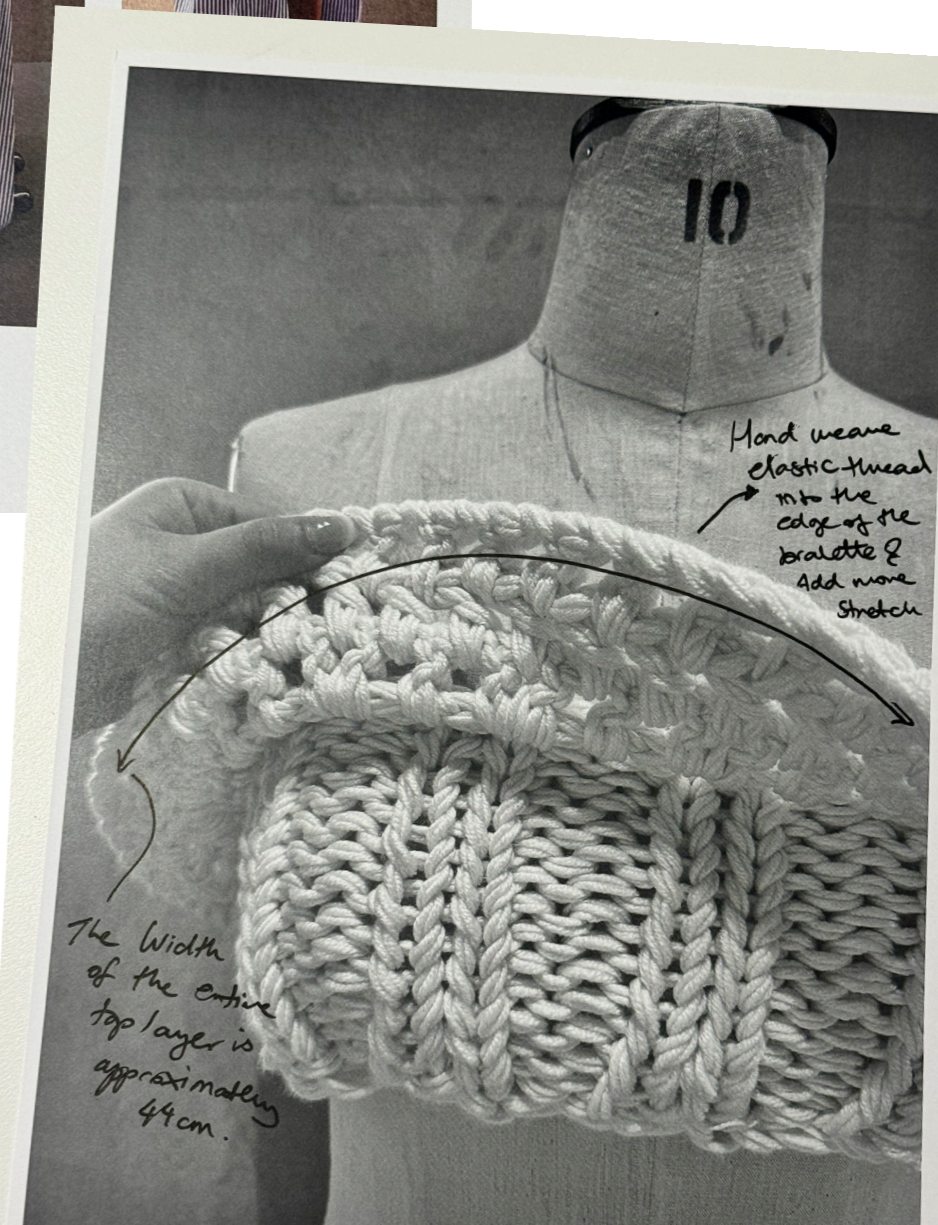 10
Hand weave
elastic thread
into the
edge of the
bralette &
Add more
stretch
The Width
of the entire
top layer is
approximately
44cm.